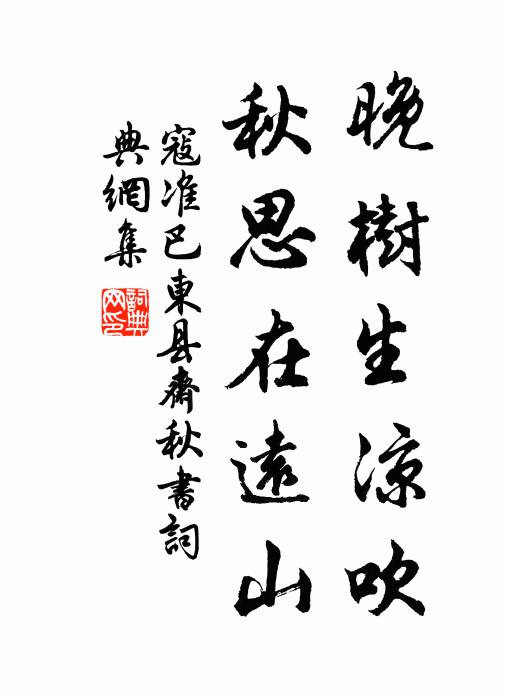 晚樹生涼吹
秋思在遠山
寇准巴東县齋秋書詞
典網集
詞典
网印